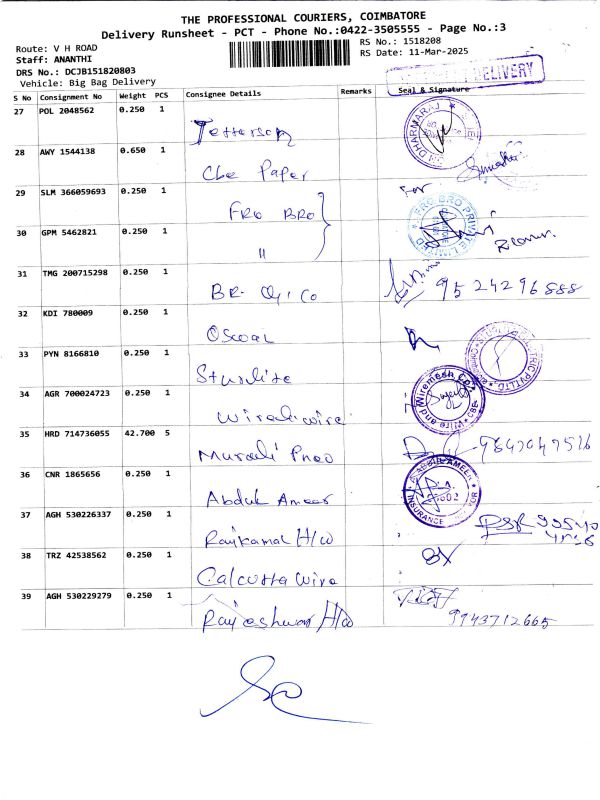 THE PROFESSIONAL COURIERS, COIMBATORE
Delivery Runsheet - PCT - Phone No.:0422-3505555 - Page No.:3
Route: V H ROAD
RS No.: 1518208
Staff: ANANTHI
RS Date: 11-Mar-2025
DRS No.: DCJB151820803
DELIVERY
Vehicle: Big Bag Delivery
S No Consignment No Weight PCS Consignee Details Remarks Seal & Signature
27 POL 2048562 0.250 1 Jefferson
28 AWY 1544138 0.650 1 Cbe Paper
29 SLM 366059693 0.250 1 FRO BRO For
30 GPM 5462821 0.250 1 "
31 TMG 200715298 0.250 1 9524296888
32 KDI 780009 0.250 1 Oscar
33 PYN 8166810 0.250 1 Sturlite
34 AGR 700024723 0.250 1 Wire & Wire Wiremesh Co
35 HRD 714736055 42.700 5 Murali Pneo
36 CNR 1865656 0.250 1 Abduk Ameer
37 AGH 530226337 0.250 1 Rajkamal H/w
38 TRZ 42538562 0.250 1 Calcutta Wire
39 AGH 530229279 0.250 1 Rajeshwari H/w 9943712665